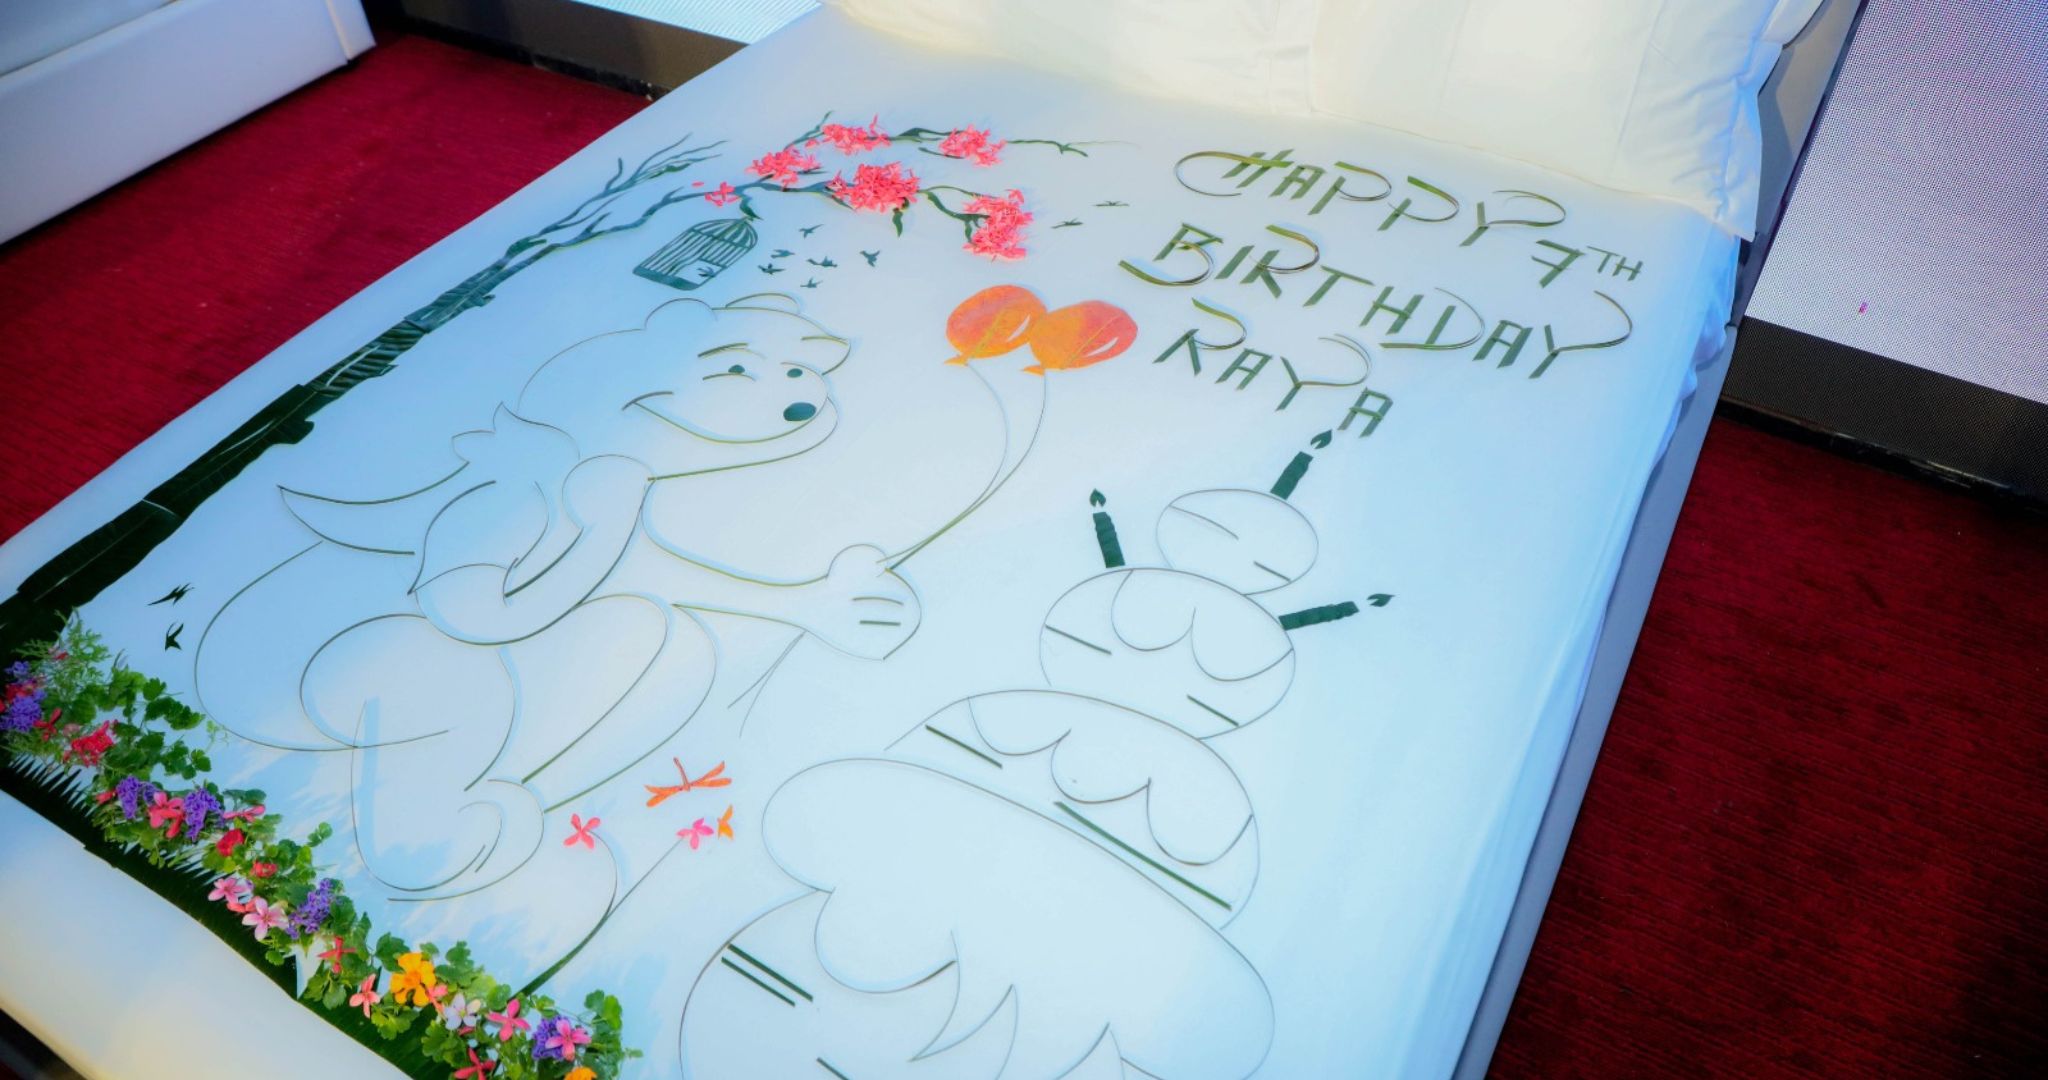 HAPPY 7TH
BIRTHDAY
RAYA